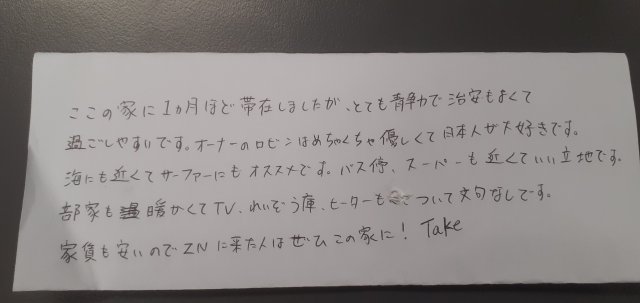 ここの家に1カ月ほど帯在しましたが、とても静かで治安もよくて
過ごしやすいです。オーナーのロビンはめちゃくちゃ優しくて日本人が大好きです。
海にも近くてサーファーにもオススメです。バス停、スーパーも近くていい立地です。
部家も暖かくてTV、れいぞう庫、ヒーターもついて文句なしです。
家賃も安いのでZNに来た人はぜひこの家に! Take